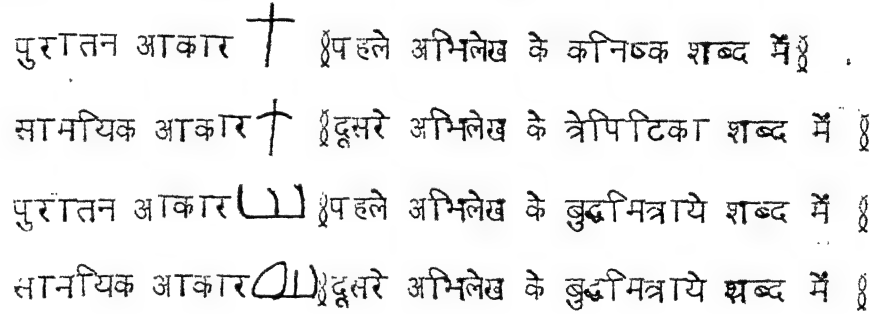 पुरातन आकार 𑀓 (पहले अभिलेख के कनिष्क शब्द में)
सामयिक आकार 𑀓 (दूसरे अभिलेख के त्रेपिटिका शब्द में)
पुरातन आकार 𑀬 (पहले अभिलेख के बुद्धमित्राये शब्द में)
सानयिक आकार 𑀬 (दूसरे अभिलेख के बुद्धमित्राये शब्द में)